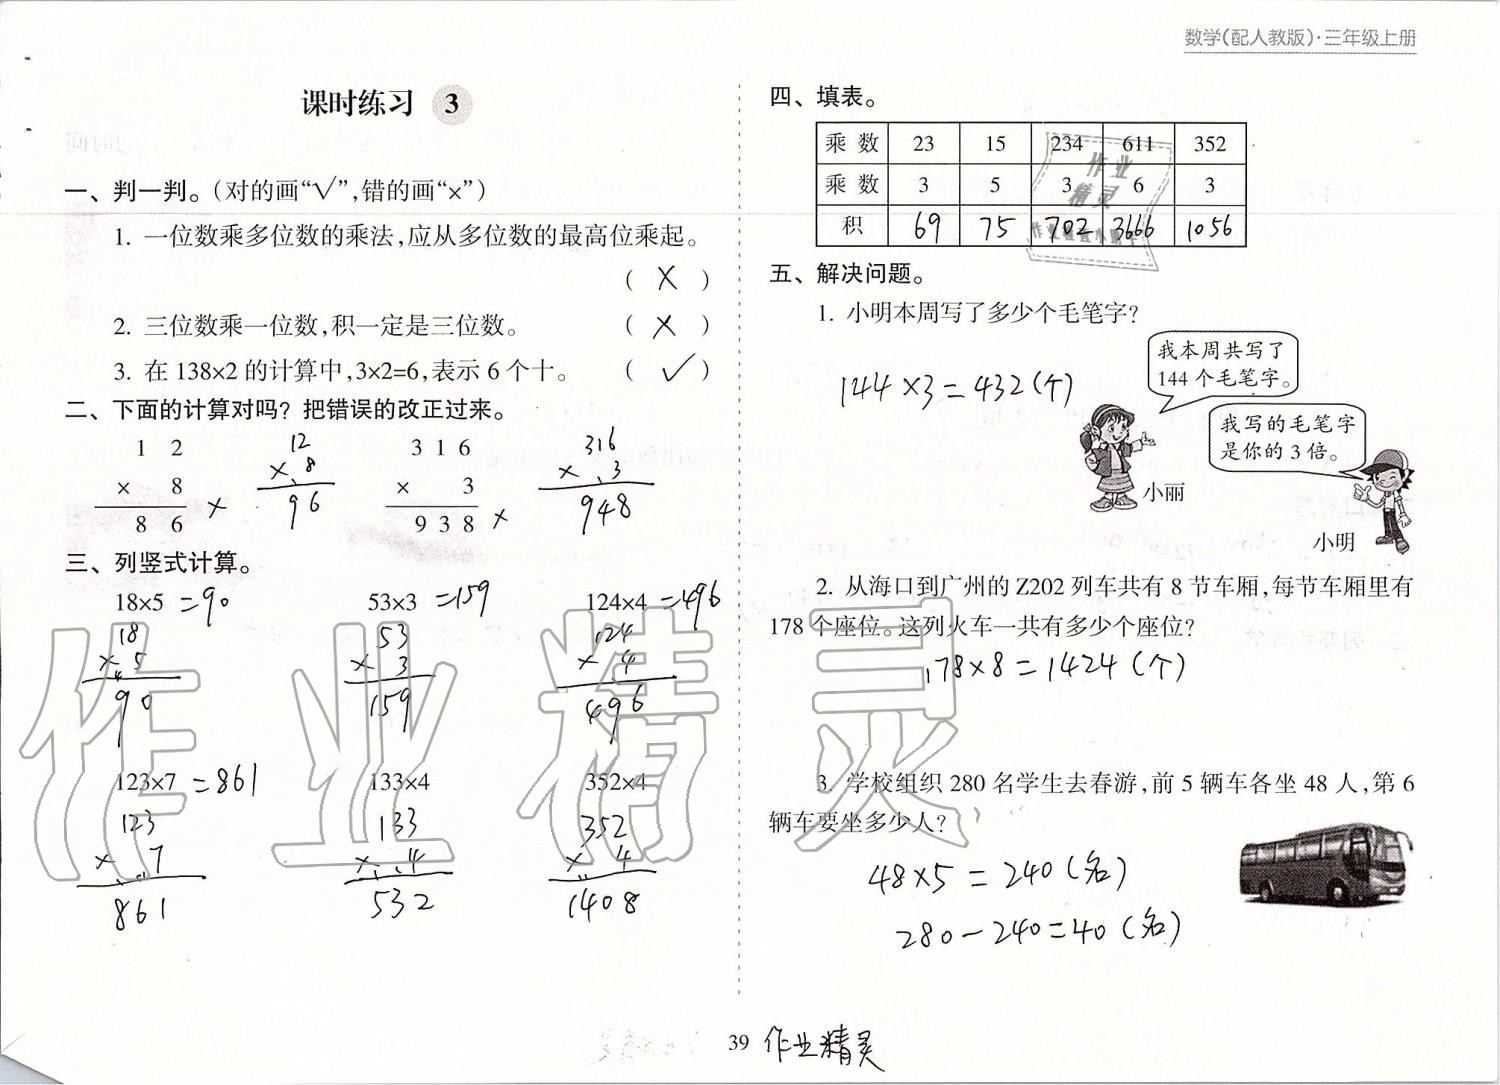 数学(配人教版)·三年级上册
课时练习 3
一、判一判。(对的画“√”,错的画“×”)
1. 一位数乘多位数的乘法,应从多位数的最高位乘起。
( × )
2. 三位数乘一位数,积一定是三位数。 ( × )
3. 在 138×2 的计算中,3×2=6,表示 6 个十。 ( ✓ )
二、下面的计算对吗? 把错误的改正过来。
1 2 12 3 1 6 316
× 8 × 8 × 3 × 3
8 6 × 96 9 3 8 × 948
三、列竖式计算。
18×5 =90 53×3 =159 124×4 =496
18 53 124
× 5 × 3 × 4
90 159 496
123×7 =861 133×4 352×4
123 133 352
× 7 × 4 × 4
861 532 1408
四、填表。
乘 数 23 15 234 611 352
乘 数 3 5 3 6 3
积 69 75 702 3666 1056
五、解决问题。
1. 小明本周写了多少个毛笔字?
我本周共写了
144 个毛笔字。
144×3=432(个)
我写的毛笔字
是你的 3 倍。
小丽
小明
2. 从海口到广州的 Z202 列车共有 8 节车厢,每节车厢里有
178 个座位。这列火车一共有多少个座位?
178×8=1424(个)
3. 学校组织 280 名学生去春游,前 5 辆车各坐 48 人,第 6
辆车要坐多少人?
48×5=240(名)
280-240=40(名)
39 作业精灵
作业精灵
作业
精灵